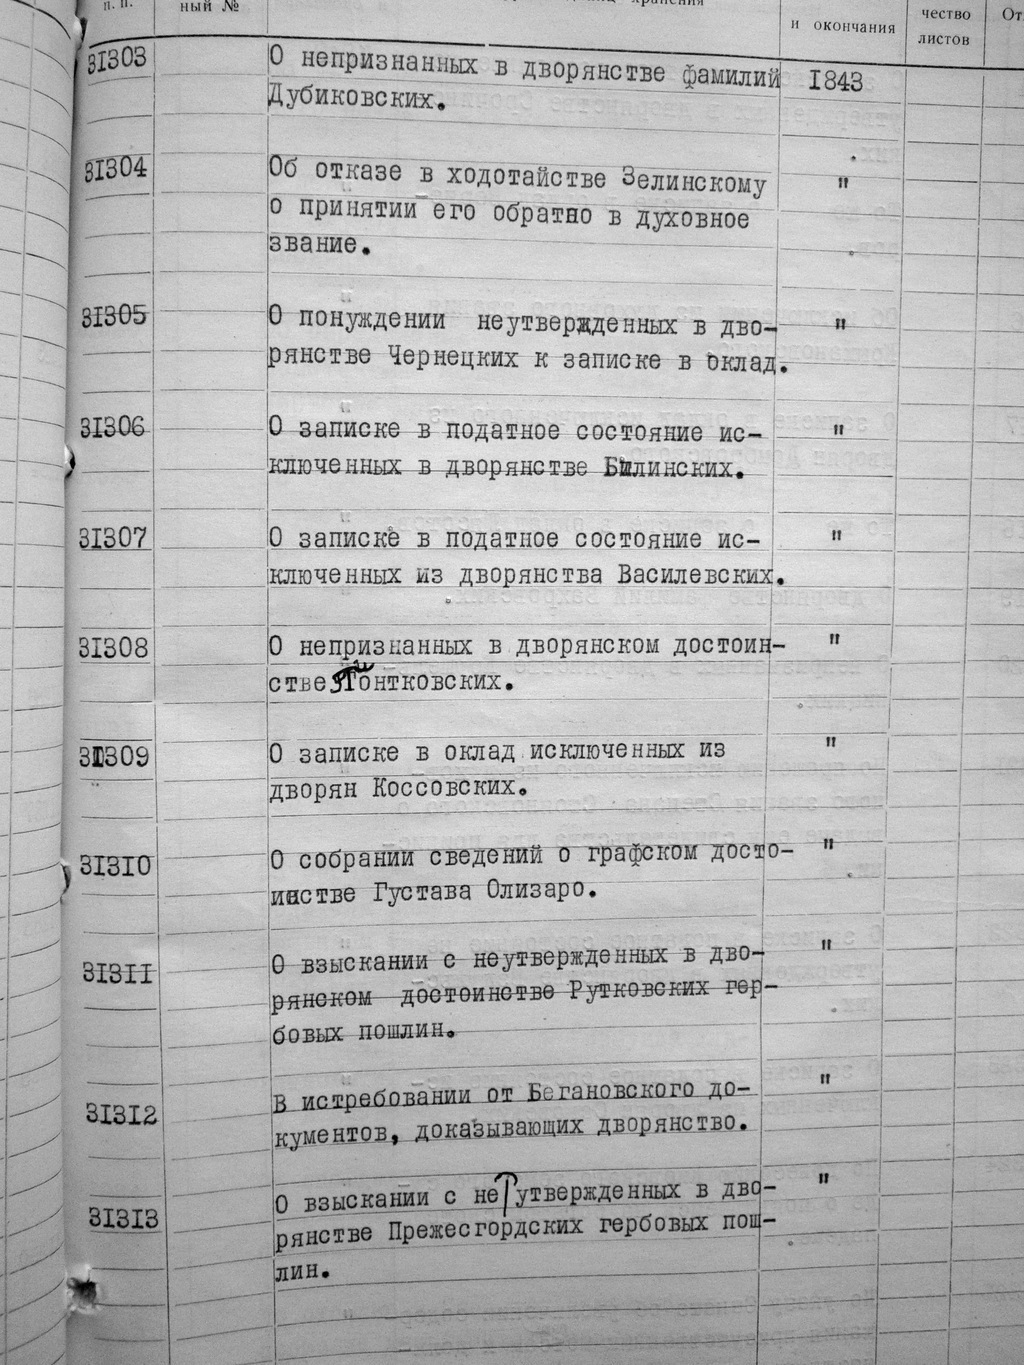 п. п.
ный №
хранения
и окончания
чество
листов
От
31303 О непризнанных в дворянстве фамилий 1843
Дубиковских.
31304 Об отказе в ходотайстве Зелинскому "
о принятии его обратно в духовное
звание.
31305 О понуждении неутвержденных в дво- "
рянстве Чернецких к записке в оклад.
31306 О записке в податное состояние ис- "
ключенных в дворянстве Билинских.
31307 О записке в податное состояние ис- "
ключенных из дворянства Василевских.
31308 О непризнанных в дворянском достоин- "
стве
31309 О записке в оклад исключенных из "
дворян Коссовских.
31310 О собрании сведений о графском досто- "
инстве Густава Олизаро.
31311 О взыскании с неутвержденных в дво- "
рянском достоинстве Рутковских гер-
бовых пошлин.
31312 В истребовании от Бегановского до- "
кументов, доказывающих дворянство.
31313 О взыскании с не утвержденных в дво- "
рянстве Прежесгордских гербовых пош-
лин.